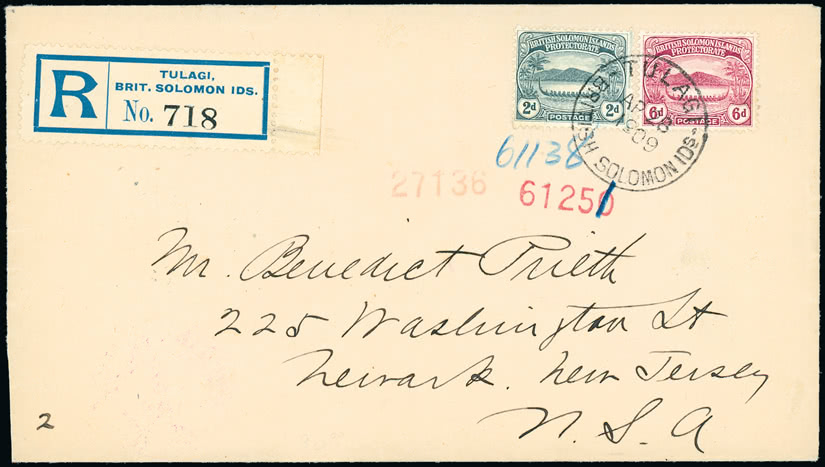 R
TULAGI,
BRIT. SOLOMON IDS.
No. 718
BRITISH SOLOMON ISLANDS
PROTECTORATE
2d 2d
POSTAGE
BRITISH SOLOMON ISLANDS
PROTECTORATE
6d 6d
POSTAGE
TULAGI
AP 28
1909
BRITISH SOLOMON IDS
61138
27136 61250
Mr. Benedict Prieth
225 Washington St
Newark. New Jersey
U.S.A
2